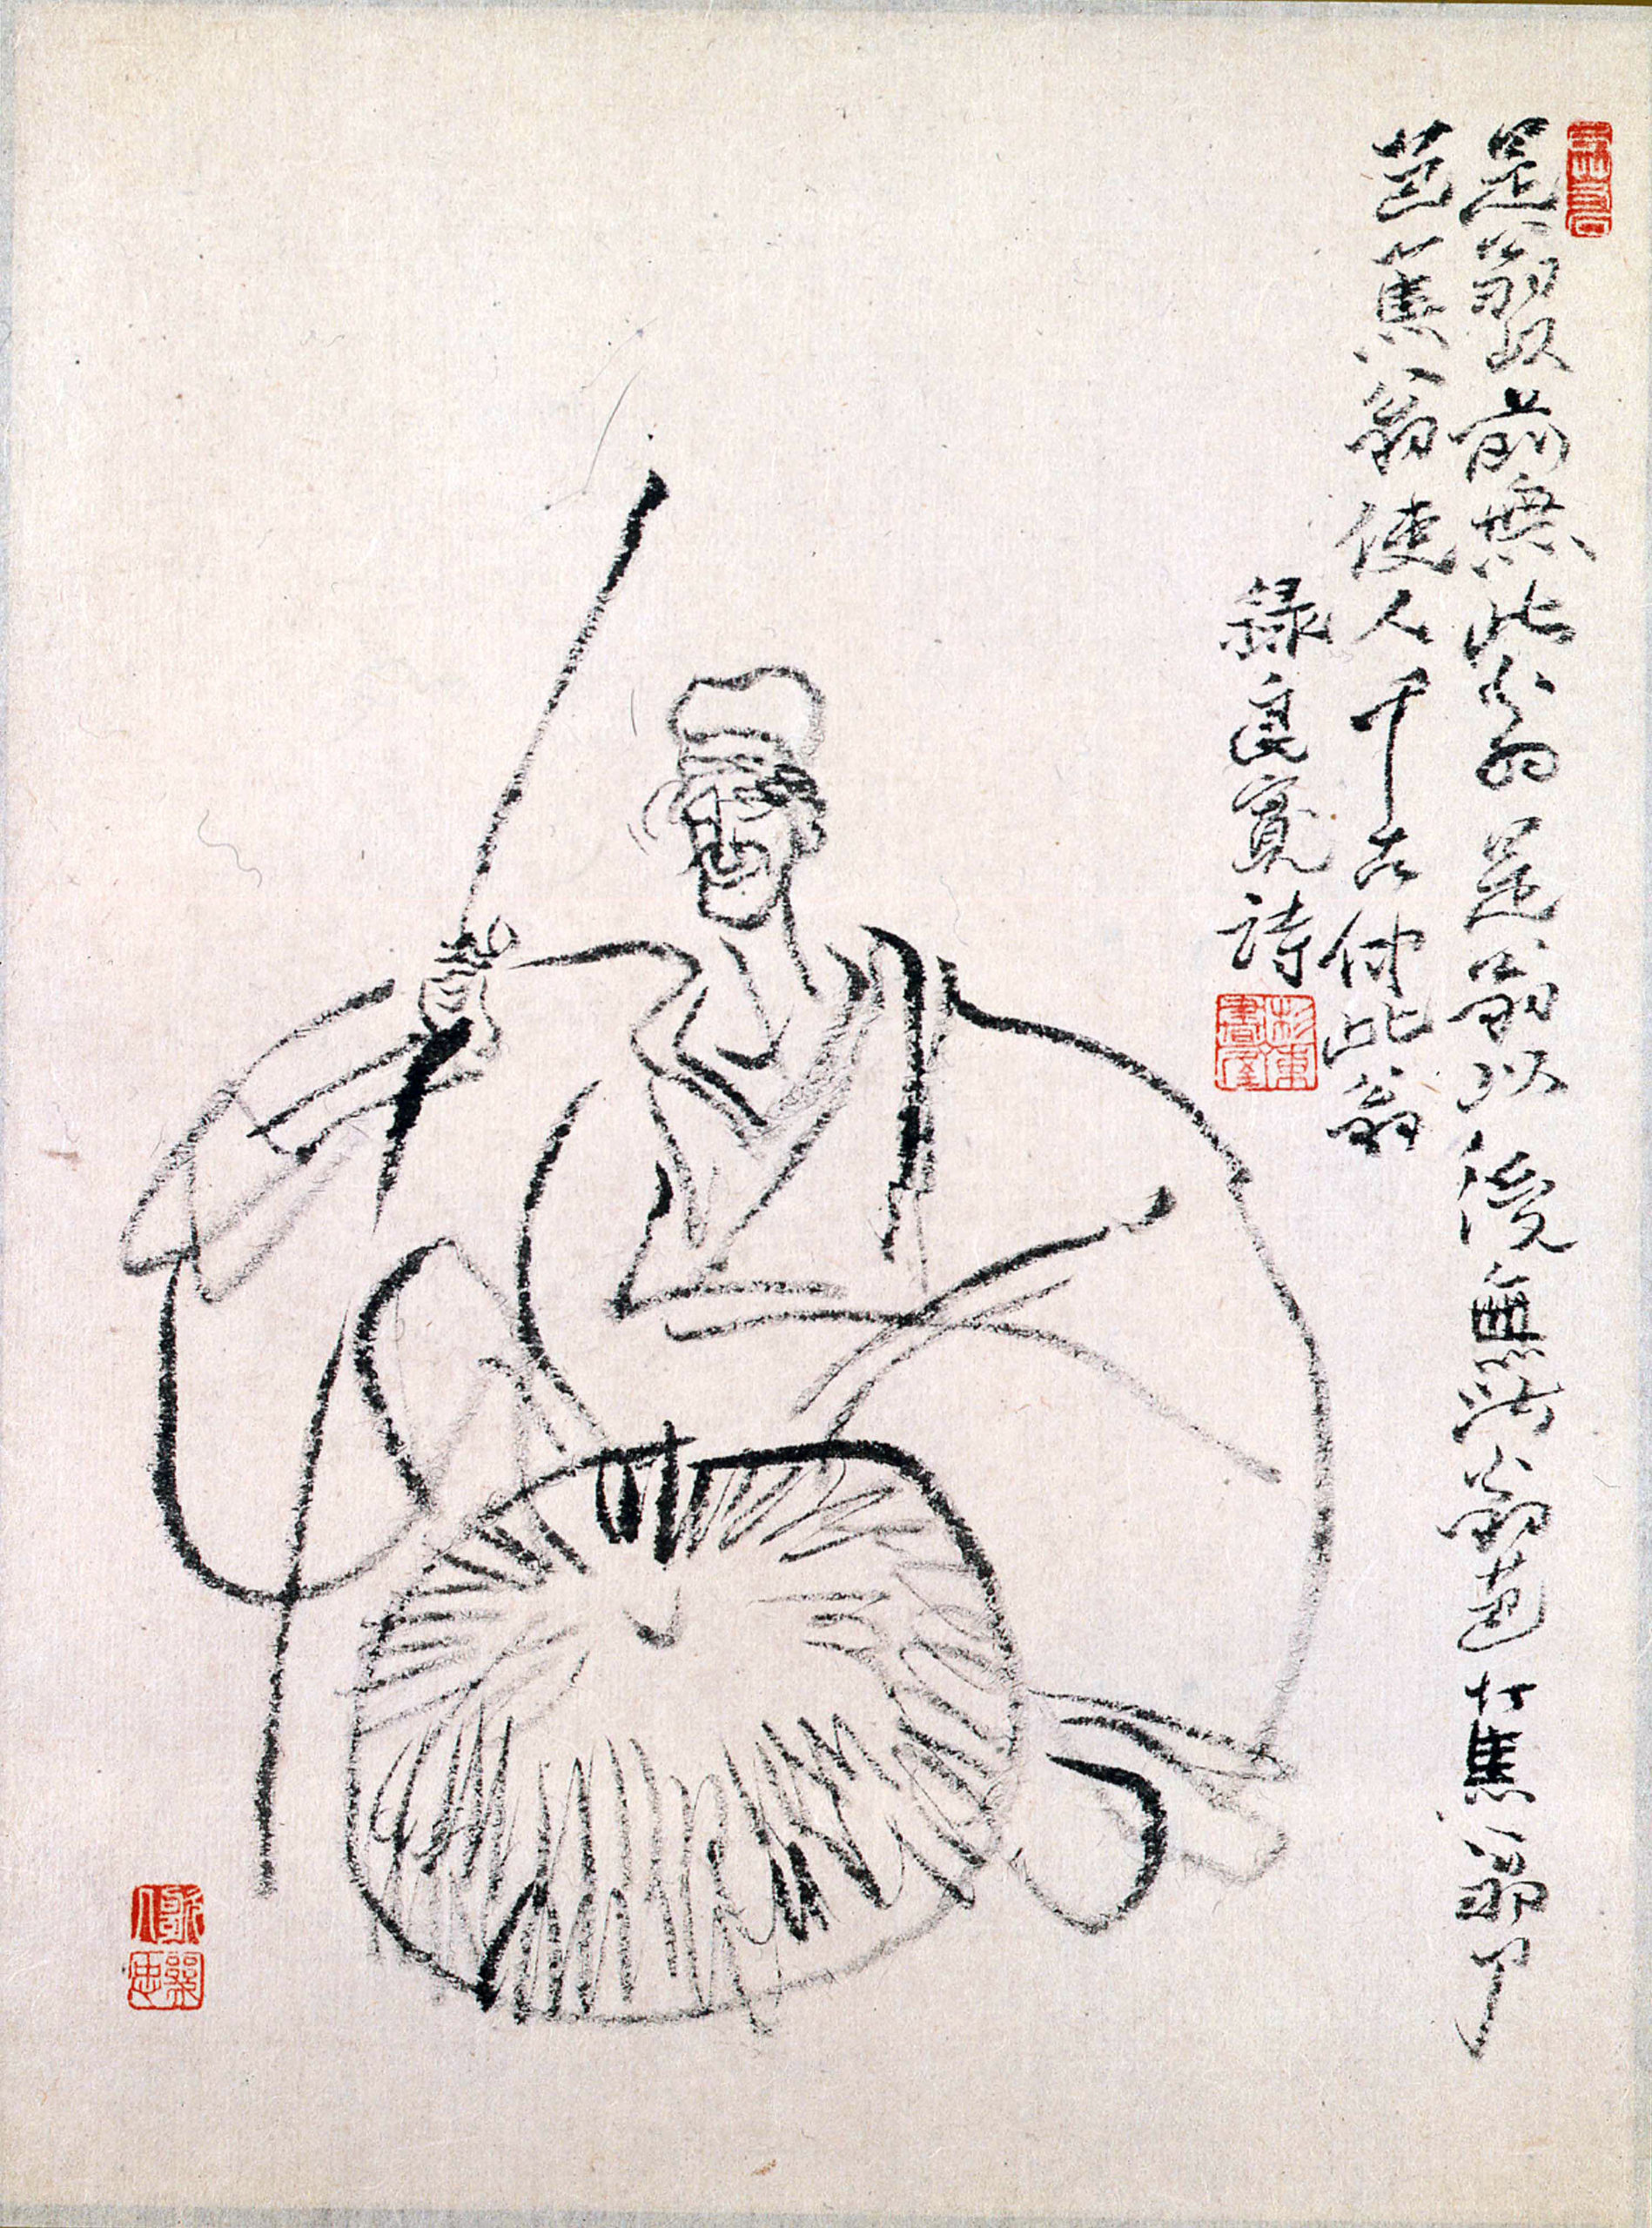 是翁以前無此翁是翁以後無此翁芭蕉翁兮
芭蕉翁使人千古仰此翁
録良寛詩
東書屋